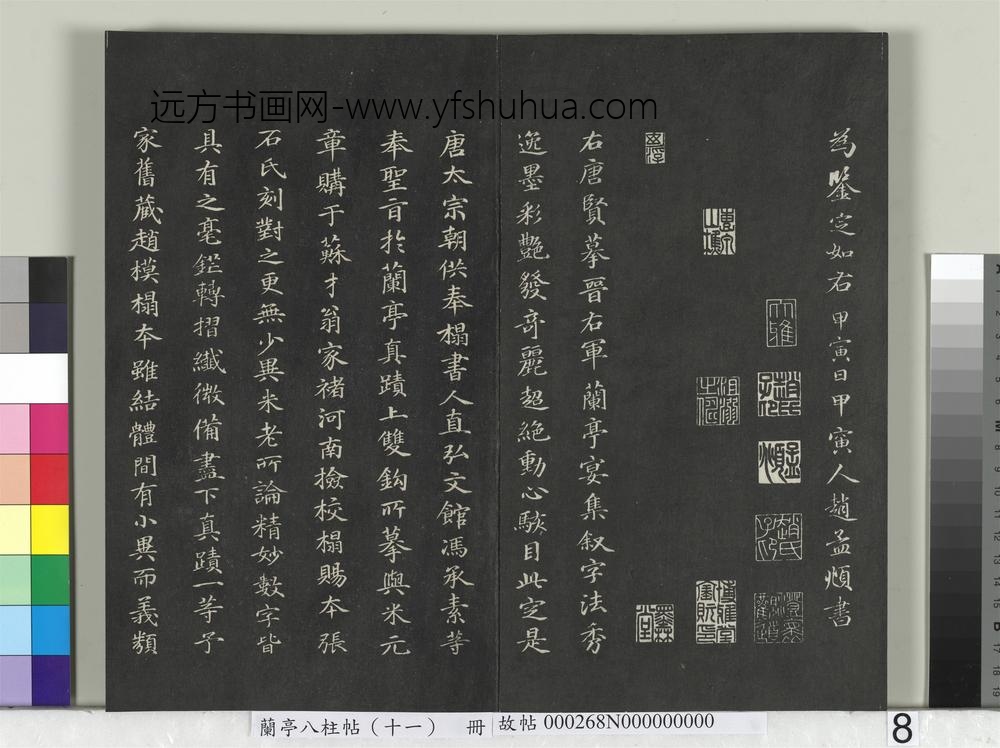 远方书画网-www.yfshuhua.com
為鑒定如右甲寅日甲寅人趙孟頫書
右唐賢摹晉右軍蘭亭宴集叙字法秀
逸墨彩艷發奇麗超絶動心駭目此定是
唐太宗朝供奉榻書人直弘文館馮承素等
奉聖旨於蘭亭真蹟上雙鈎所摹與米元
章購于蘇才翁家褚河南撿校榻賜本張
石氏刻對之更無少異米老所論精妙數字皆
具有之毫鋩轉摺纖微備盡下真蹟一等予
家舊藏趙模榻本雖結體間有小異而義類
蘭亭八柱帖（十一） 冊
故帖 000268N000000000
8